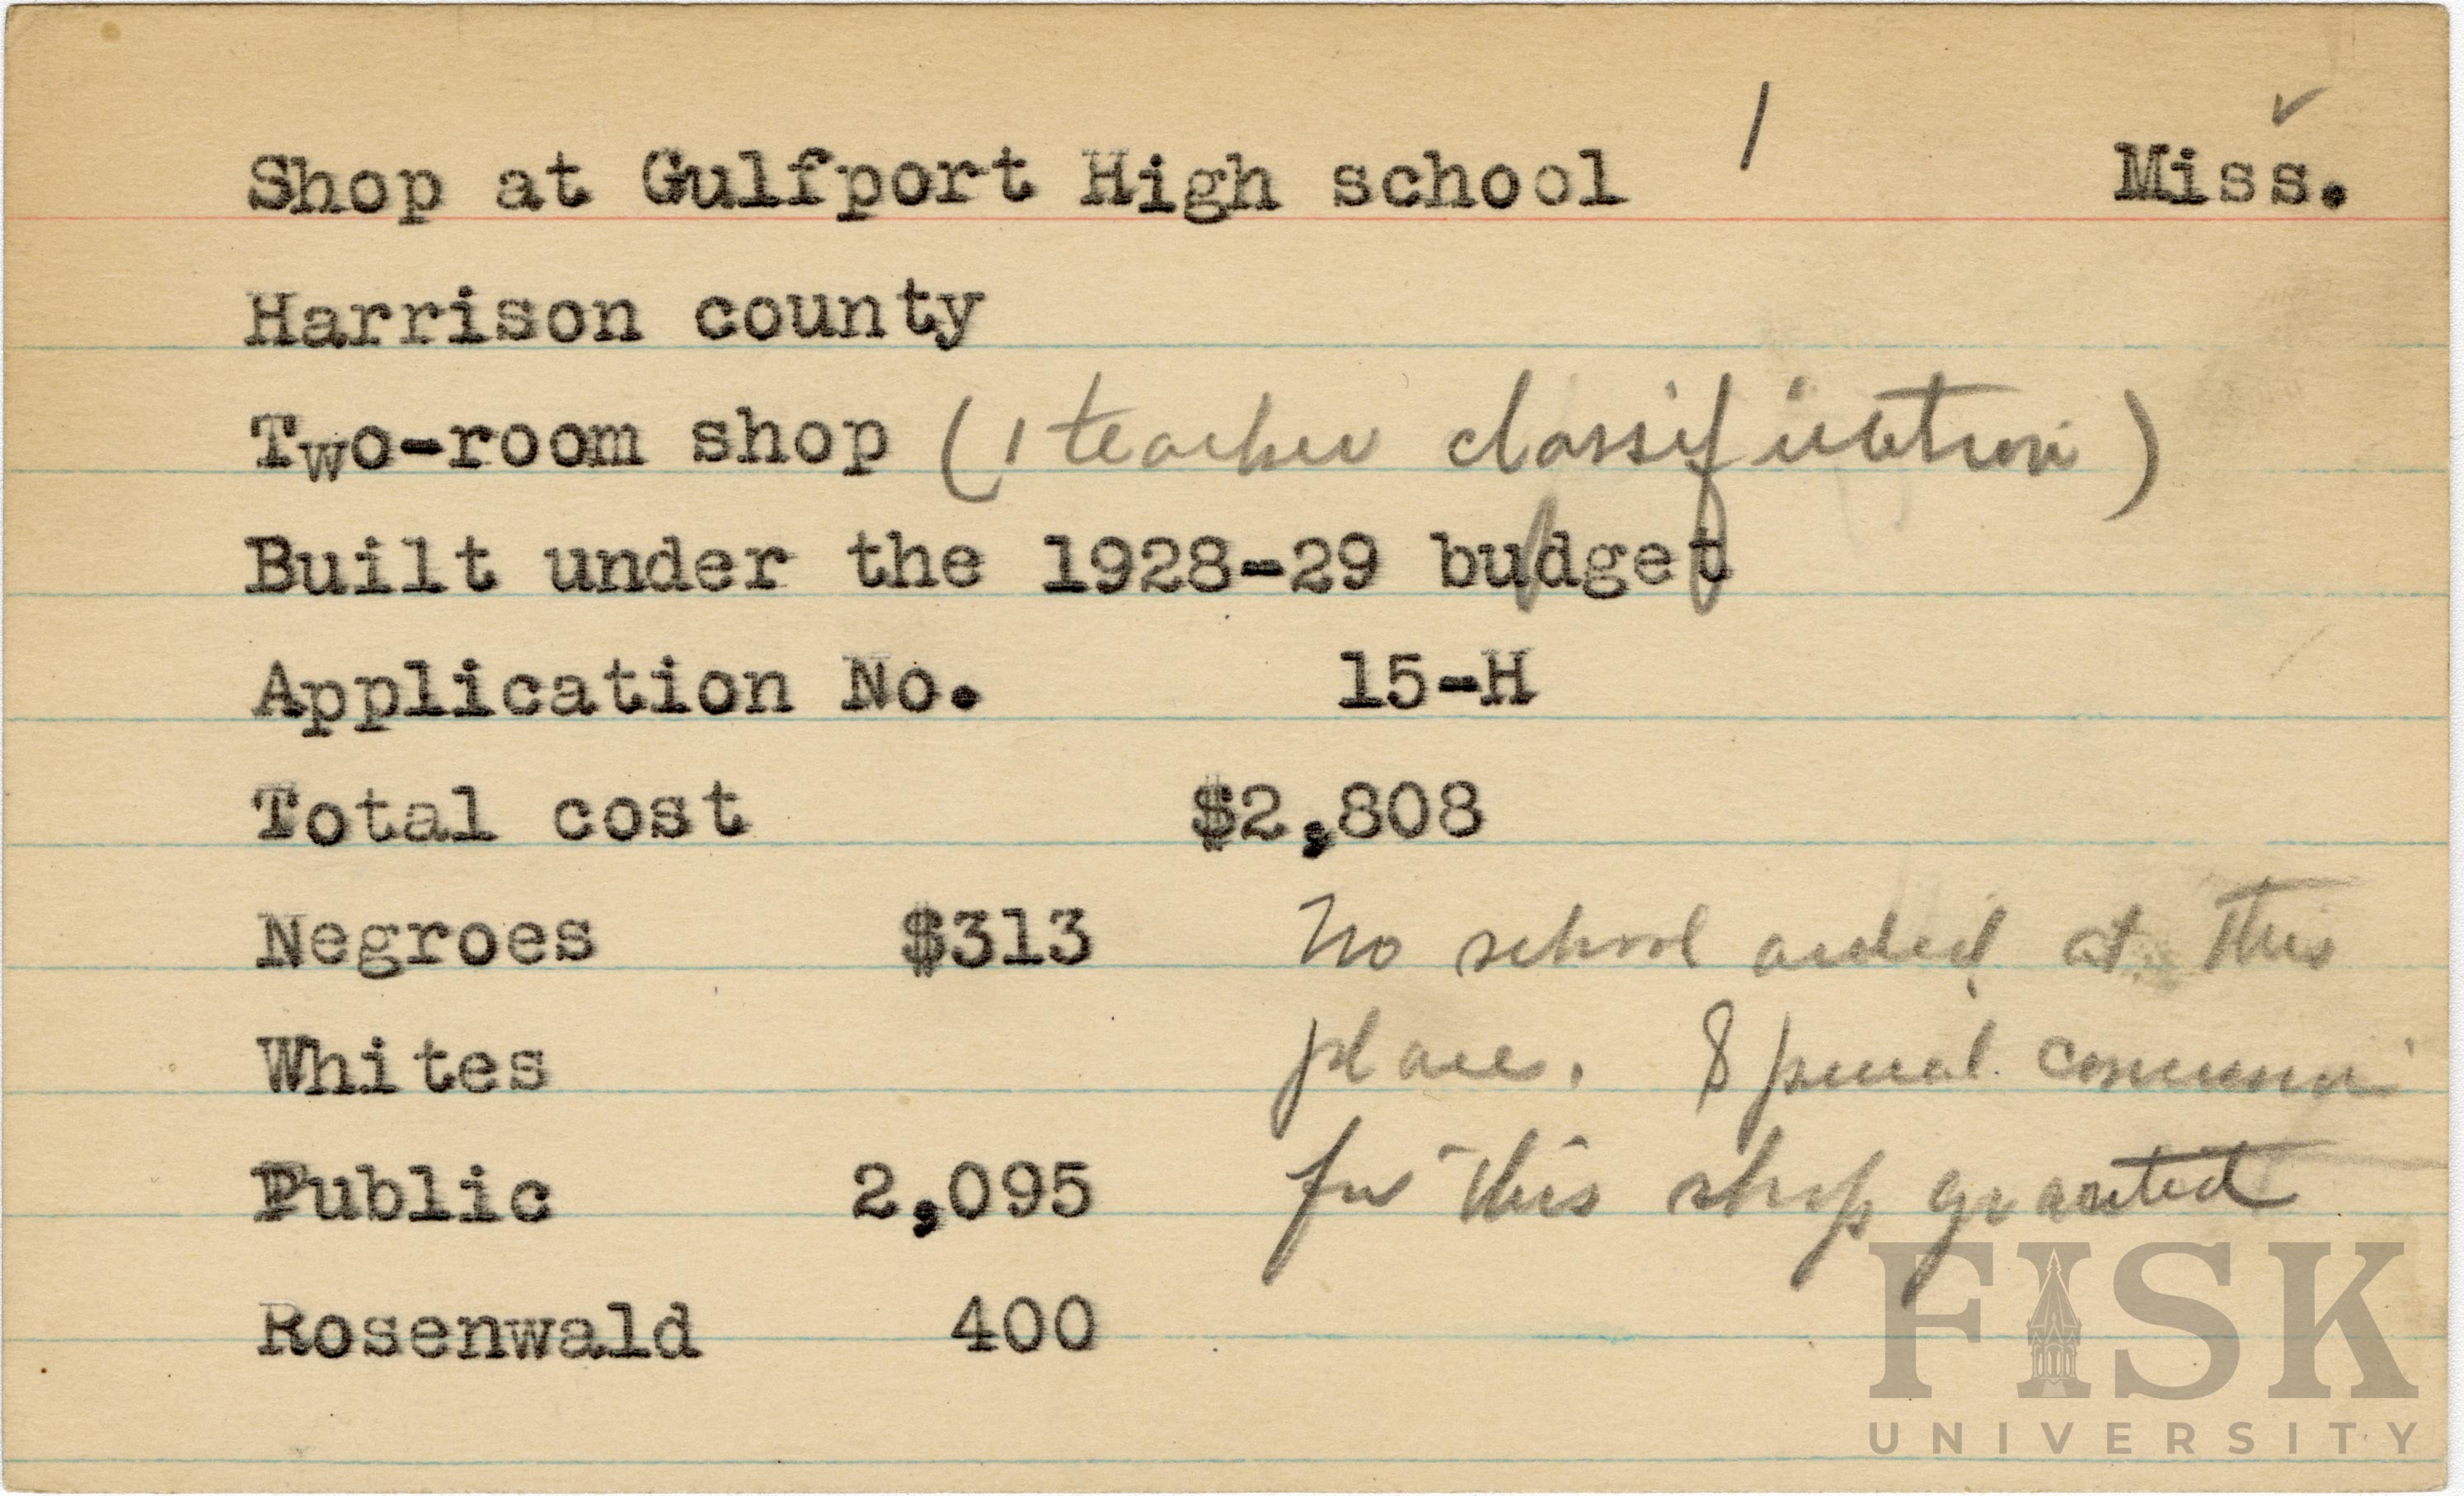 Shop at Gulfport High school / Miss. ✓
Harrison county
Two-room shop (1 teacher classification)
Built under the 1928-29 budget
Application No. 15-H
Total cost $2,808
Negroes $313 No school aided at this
Whites place. Special
Public 2,095 for this shop granted
Rosenwald 400
FISK
UNIVERSITY